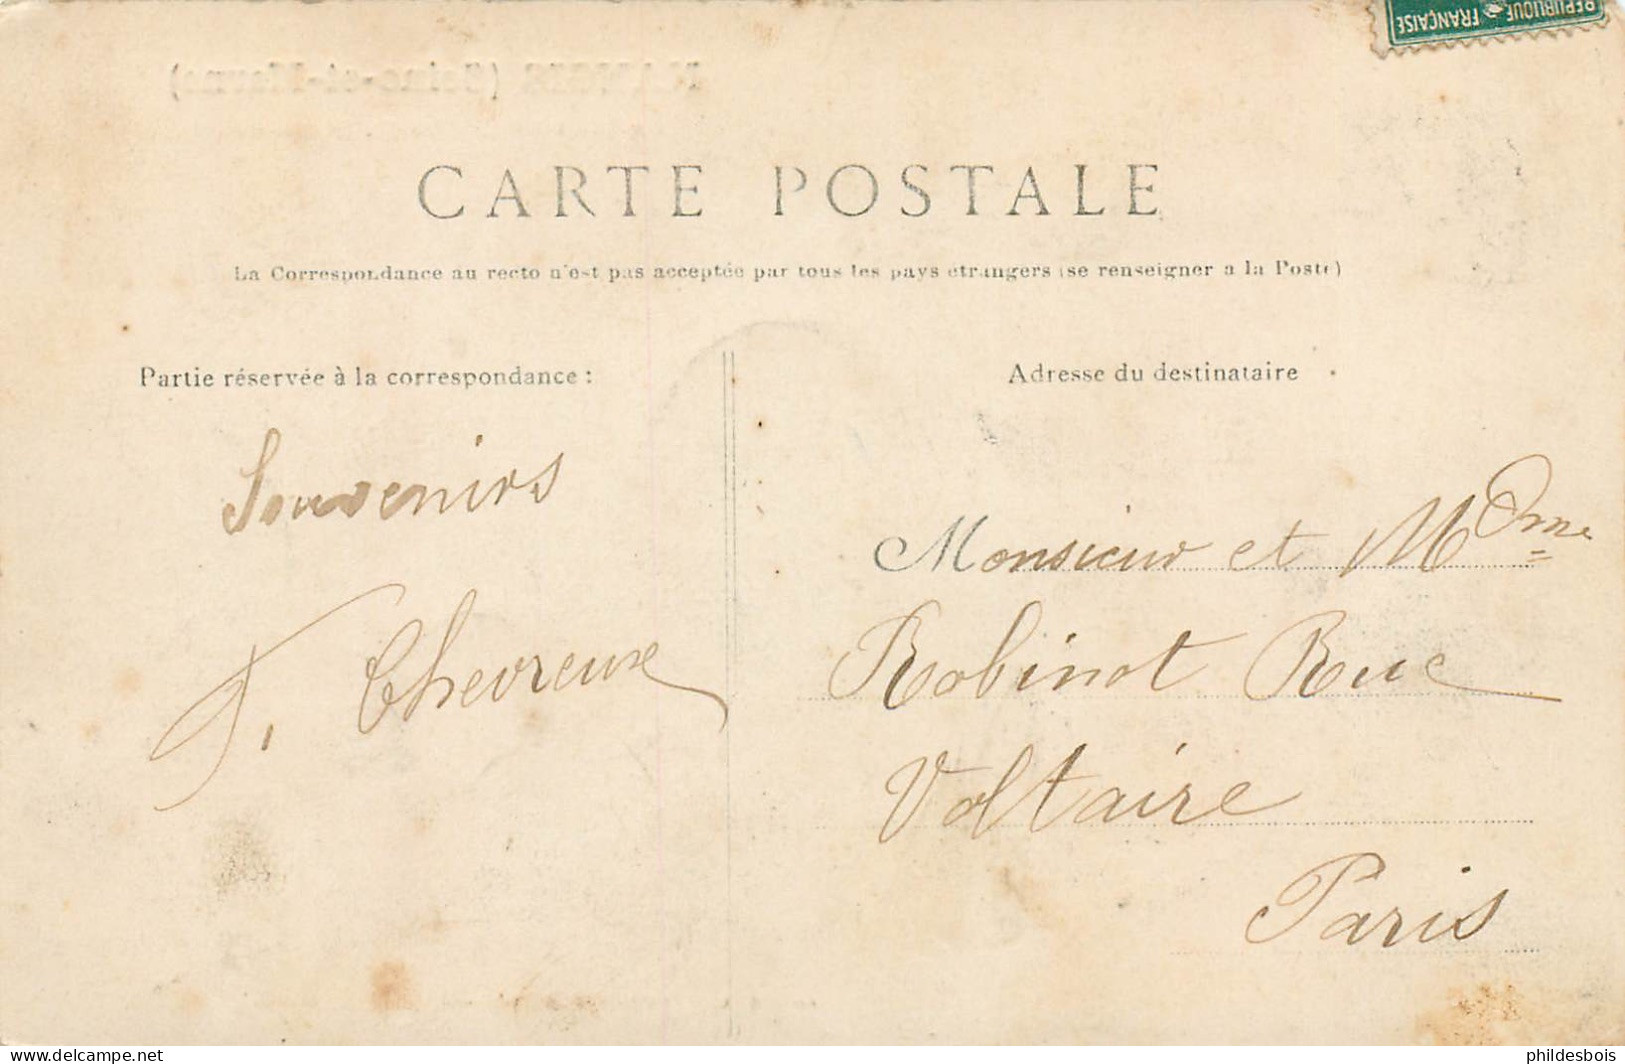 RÉPUBLIQUE FRANÇAISE
(Seine-et-Marne)
CARTE POSTALE
La Correspondance au recto n'est pas acceptée par tous les pays étrangers (se renseigner à la Poste)
Partie réservée à la correspondance :
Adresse du destinataire
Souvenirs
F. Chevreux
Monsieur et Mme
Robinot Rue
Voltaire
Paris
www.delcampe.net
phildesbois